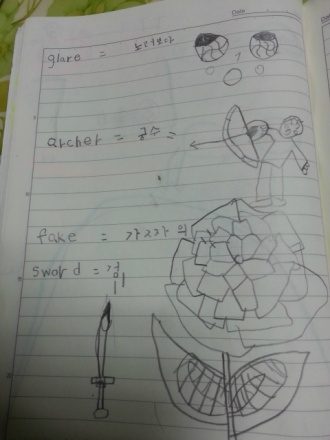 Date
glare = 노려보다
archer = 궁수 =
fake = 가짜가의
sword = 검